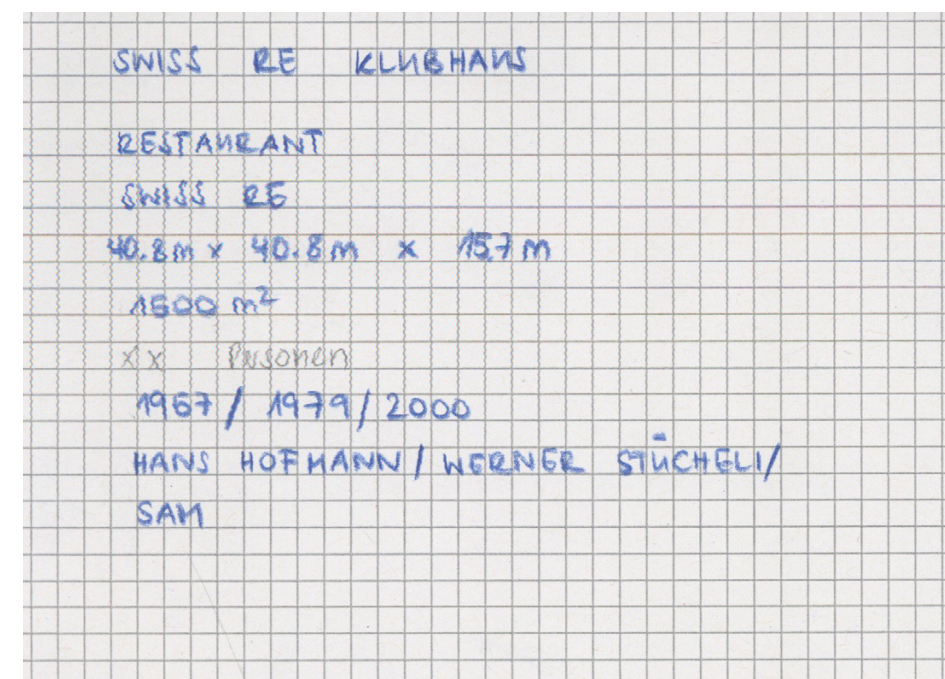 SWISS RE KLUBHAUS
RESTAURANT
SWISS RE
40.8m x 40.8m x 15.7m
1600 m²
xx Personen
1957 / 1979 / 2000
HANS HOFMANN / WERNER STÜCHELI /
SAM